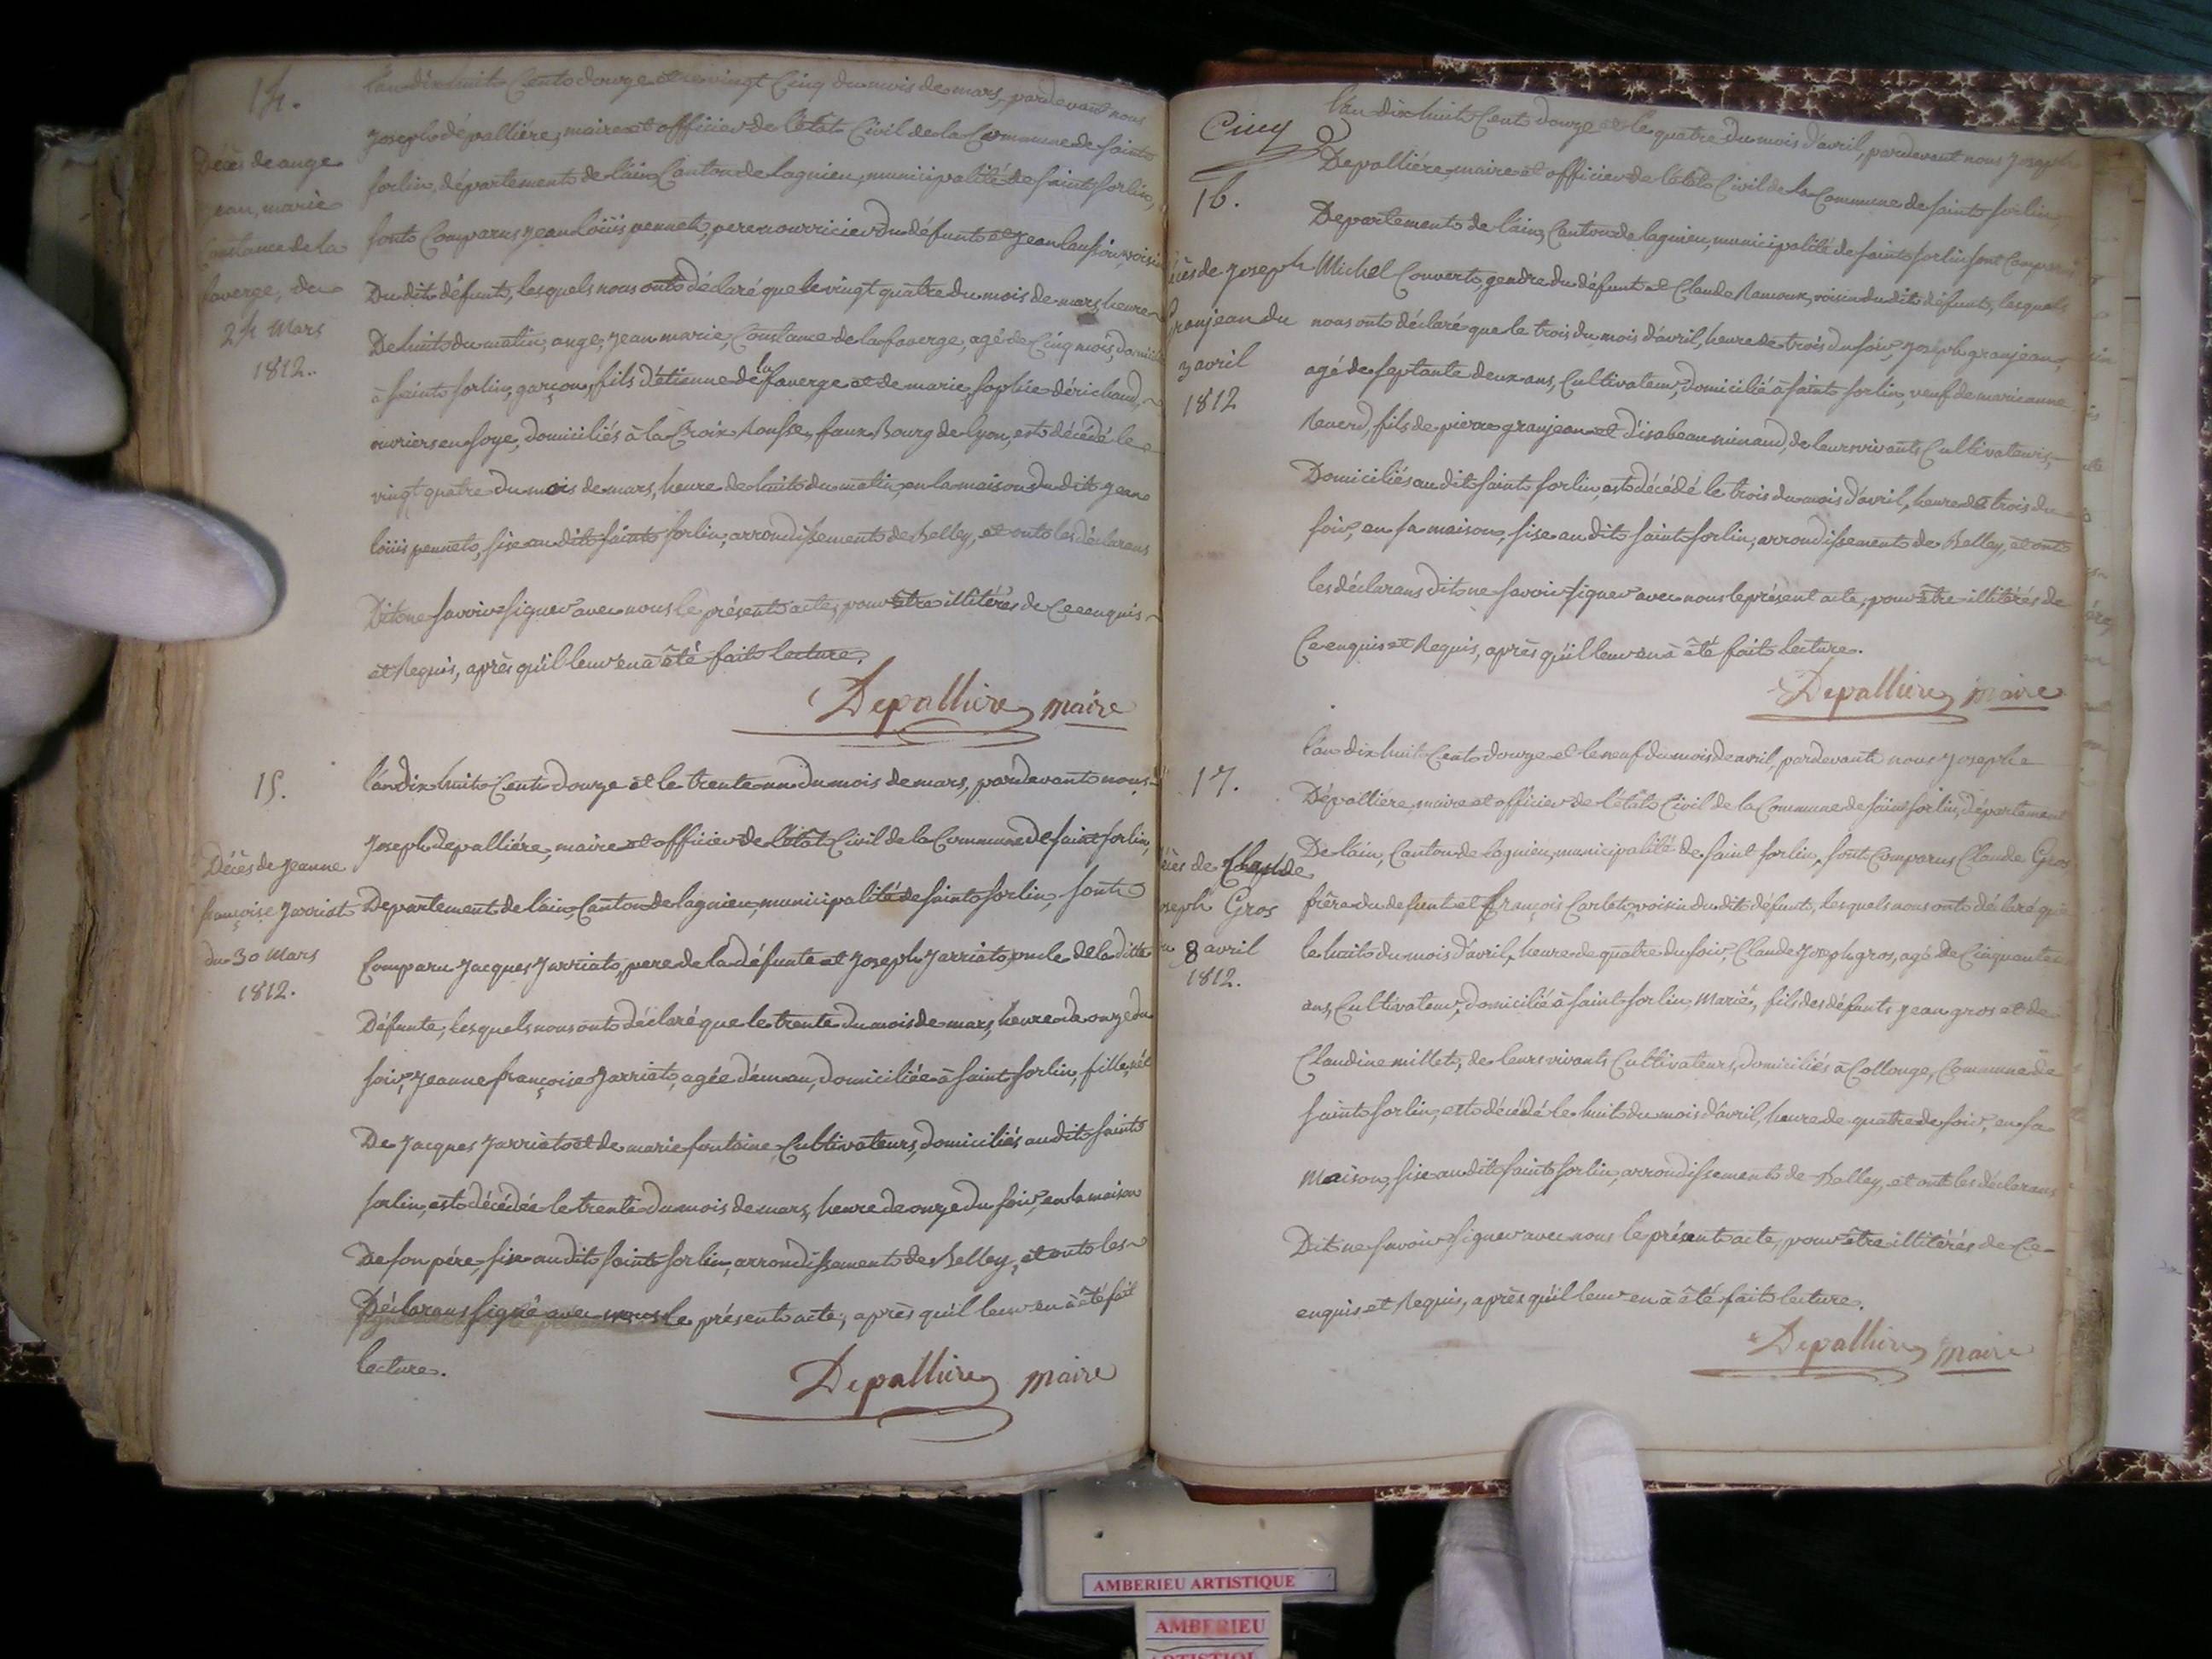 14.
Décès de ange
jean, marie
Constance de la
faverge, du
24 Mars
1812.
l'an dix huit Cent douze et le vingt Cinq du mois de mars, pardevant nous
Joseph dépalliére, maire et officier de l'état Civil de la Commune de saint
sorlin, département de l'ain, Canton de lagnieu, municipalité de saint sorlin,
sont Comparus jean loüis pennet, pere nourricier du défunt et jean voisin
Du dit défunt, lesquels nous ont déclaré que le vingt quatre du mois de mars, heure
De huit du matin, ange, jean marie, Constance de la faverge, agé de Cinq mois, domicilié
à saint sorlin, garçon, fils d'étienne de la faverge et de marie, sophie dérichaud,
ouvriers en soye, domiciliés à la Croix Rousse, faux Bourg de lyon, est décédé le
vingt quatre du mois de mars, heure de huit du matin, en la maison du dit jean
loüis pennet, sise au dit saint sorlin, arrondissement de Belley, et ont les déclarans
Dit ne savoir signer avec nous le présent acte, pour être illitérés de Ce enquis
et Requis, après qu'il leur en à été fait lecture.
Depalliere maire
15.
Décès de jeanne
françoise Jarriat
du 30 Mars
1812.
l'an dix huit Cent douze et le trente un du mois de mars, pardevant nous
Joseph depalliére, maire et officier de l'état Civil de la Commune de saint sorlin,
Departement de lain, Canton de lagnieu, municipalité de saint sorlin, sont
Comparu Jacques Jarriat, pere de la défunte et Joseph Jarriat, oncle de la ditte
Défunte, lesquels nous ont déclaré que le trente du mois de mars, heure de onze du
soir, Jeanne françoise Jarriat, agée d'un an, domiciliée à saint sorlin, fille
De Jacques Jarriat et de marie fontaine Cultivateurs, domiciliés au dit saint
sorlin, est décédée le trente du mois de mars, heure de onze du soir, en la maison
De son pére, sise au dit saint sorlin, arrondissement de Belley, et ont les
Déclarans signé avec nous le présent acte, après qu'il leur en à été fait
lecture.
Depalliere maire
Cinq
16.
Décès de Joseph
Granjean du
3 avril
1812
l'an dix huit Cent douze et le quatre du mois d'avril, pardevant nous Joseph
Depalliére, maire et officier de l'état Civil de la Commune de saint sorlin,
Departement de l'ain, Canton de lagnieu, municipalité de saint sorlin sont Comparus
Michel Convert, gendre du défunt et Claude Ramoux, voisin du dit défunt, lesquels
nous ont déclaré que le trois du mois d'avril, heure de trois du soir, Joseph granjean,
agé de septante deux ans, Cultivateur, domicilié à saint sorlin, veuf de marieanne
fils de pierre granjean et d'isabeau de leurs vivants Cultivateurs,
Domiciliés au dit saint sorlin, est décédé le trois du mois d'avril, heure de trois du
soir, en sa maison, sise au dit saint sorlin, arrondissement de Belley, et ont
les déclarans dit ne savoir signer avec nous le présent acte, pour être illitérés de
Ce enquis et Requis, après qu'il leur en à été fait lecture.
Depalliere maire
17.
Décès de Claude
Joseph Gros
du 8 avril
1812.
l'an dix huit Cent douze et le neuf du mois de avril, pardevant nous Joseph
Dépalliére, maire et officier de l'état Civil de la Commune de saint sorlin, département
De lain, Canton de lagnieu, municipalité de saint sorlin, sont Comparus Claude Gros
frére du defunt et françois Carlet, voisin du dit défunt, lesquels nous ont déclaré que
le huit du mois d'avril, heure de quatre du soir, Claude Joseph gros, agé de Cinquante
ans, Cultivateur, domicilié à saint sorlin, Marié, fils des défunts jean gros et de
Claudine millet, de leurs vivants Cultivateurs, domiciliés à Collonge, Commune de
saint sorlin, est décédé le huit du mois d'avril, heure de quatre de soir, en sa
Maison, sise au dit saint sorlin, arrondissement de Belley, et ont les déclarans
Dit ne savoir signer avec nous le présent acte, pour être illitérés de Ce
enquis et Requis, après qu'il leur en à été fait lecture.
Depalliere maire
AMBERIEU ARTISTIQUE
AMBERIEU
ARTISTIQUE